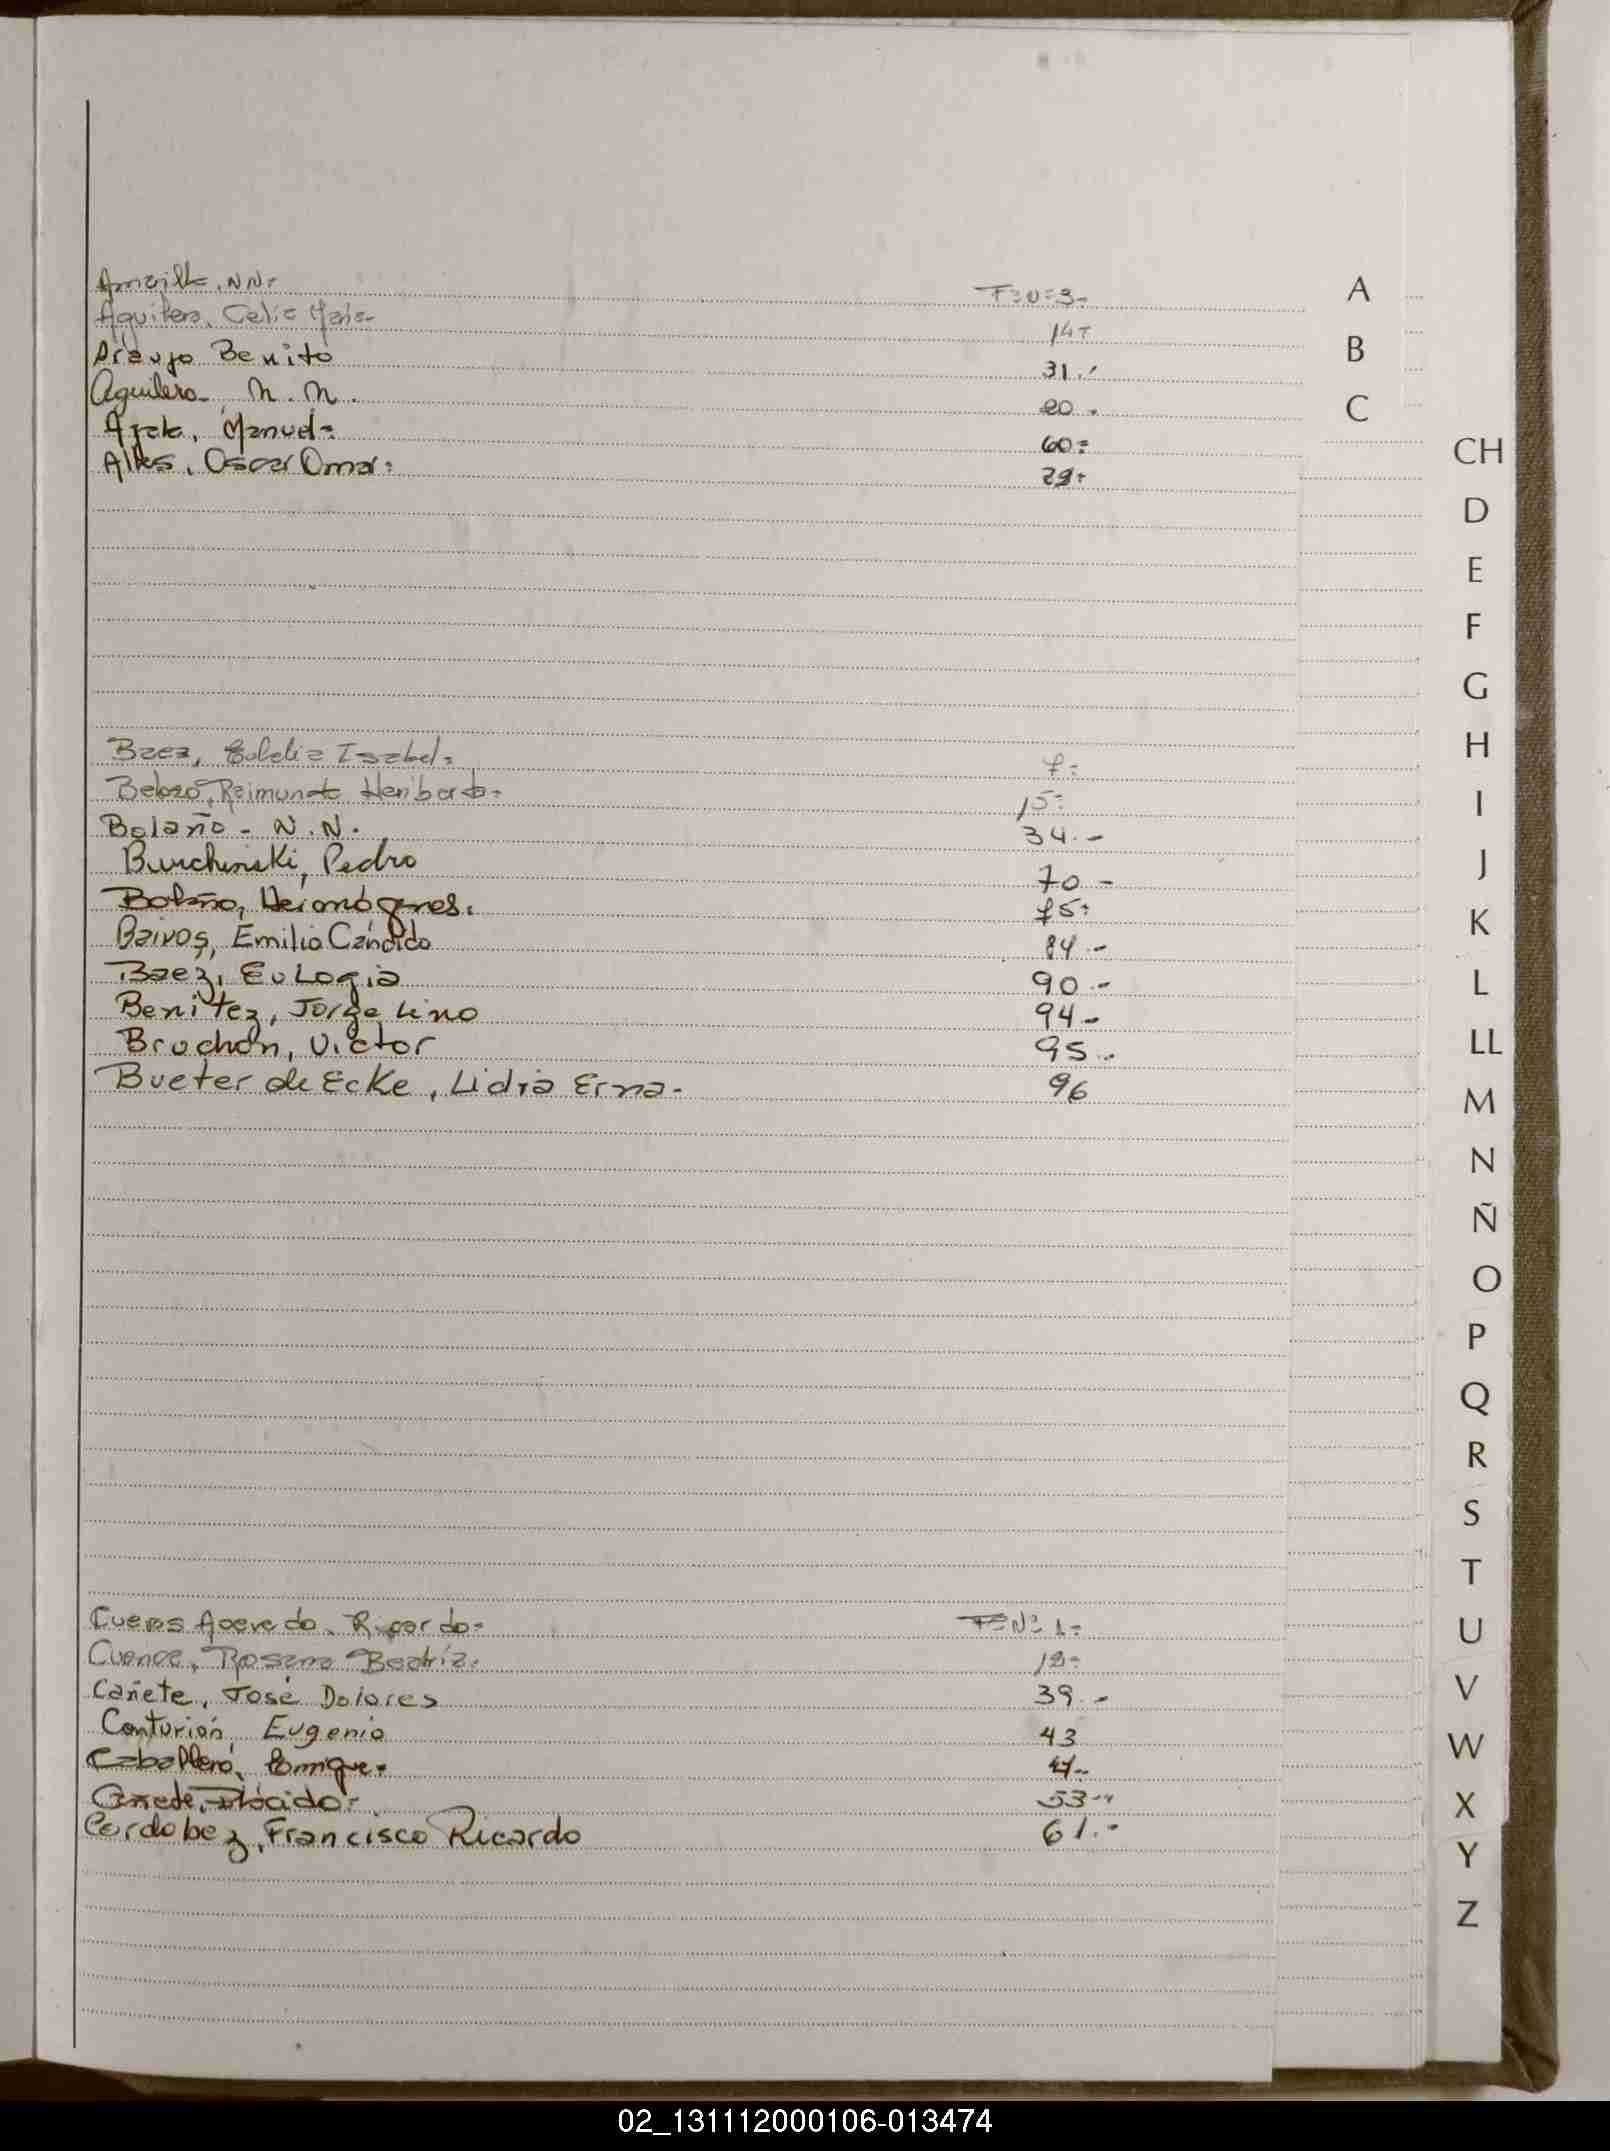 Amarilla, NN= Fº Nº 3-
Aguilera, Celia María- 14-
Araujo Benito 31.-
Aguilera, N. N. 20.-
Ayala, Manuel= 60=
Oscar Omar= 29-
Baez, Eulalia Isabel= 7=
Belozo, Raimundo Heriberto= 15=
Bolaño - N.N. 34.-
Burchinski, Pedro 70-
Bolaño, Hermógenes. 75=
Emilio Cándido 84.-
Baez, Eulogia 90.-
Benitez, Jorge Lino 94-
Bruchon, Victor 95.-
Bueter de Ecke, Lidia Erna- 96
Cuevas Acevedo, Ricardo= Fº Nº 1=
Cuenca, Rosana Beatríz=
Cañete, José Dolores 39.-
Centurión, Eugenio 43
Caballero, Enrique=
Cañete, Plácido= 53.-
Cordobez, Francisco Ricardo 61.-
A
B
C
CH
D
E
F
G
H
I
J
K
L
LL
M
N
Ñ
O
P
Q
R
S
T
U
V
W
X
Y
Z
02_131112000106-013474